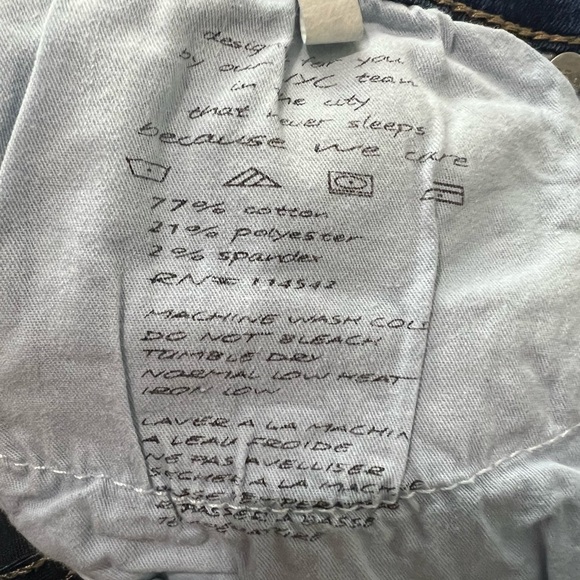 for you
by our NYC team
in the city
that never sleeps
because we care
77% cotton
21% polyester
2% spandex
RN# 114542
MACHINE WASH COLD
DO NOT BLEACH
TUMBLE DRY
NORMAL LOW HEAT
IRON LOW
LAVER A LA MACHIN
A LEAU FROIDE
NE PAS AVELLISER
SECHER A LA MACHINE
BASSE TEMPERATURE
REPASSER A BASSE